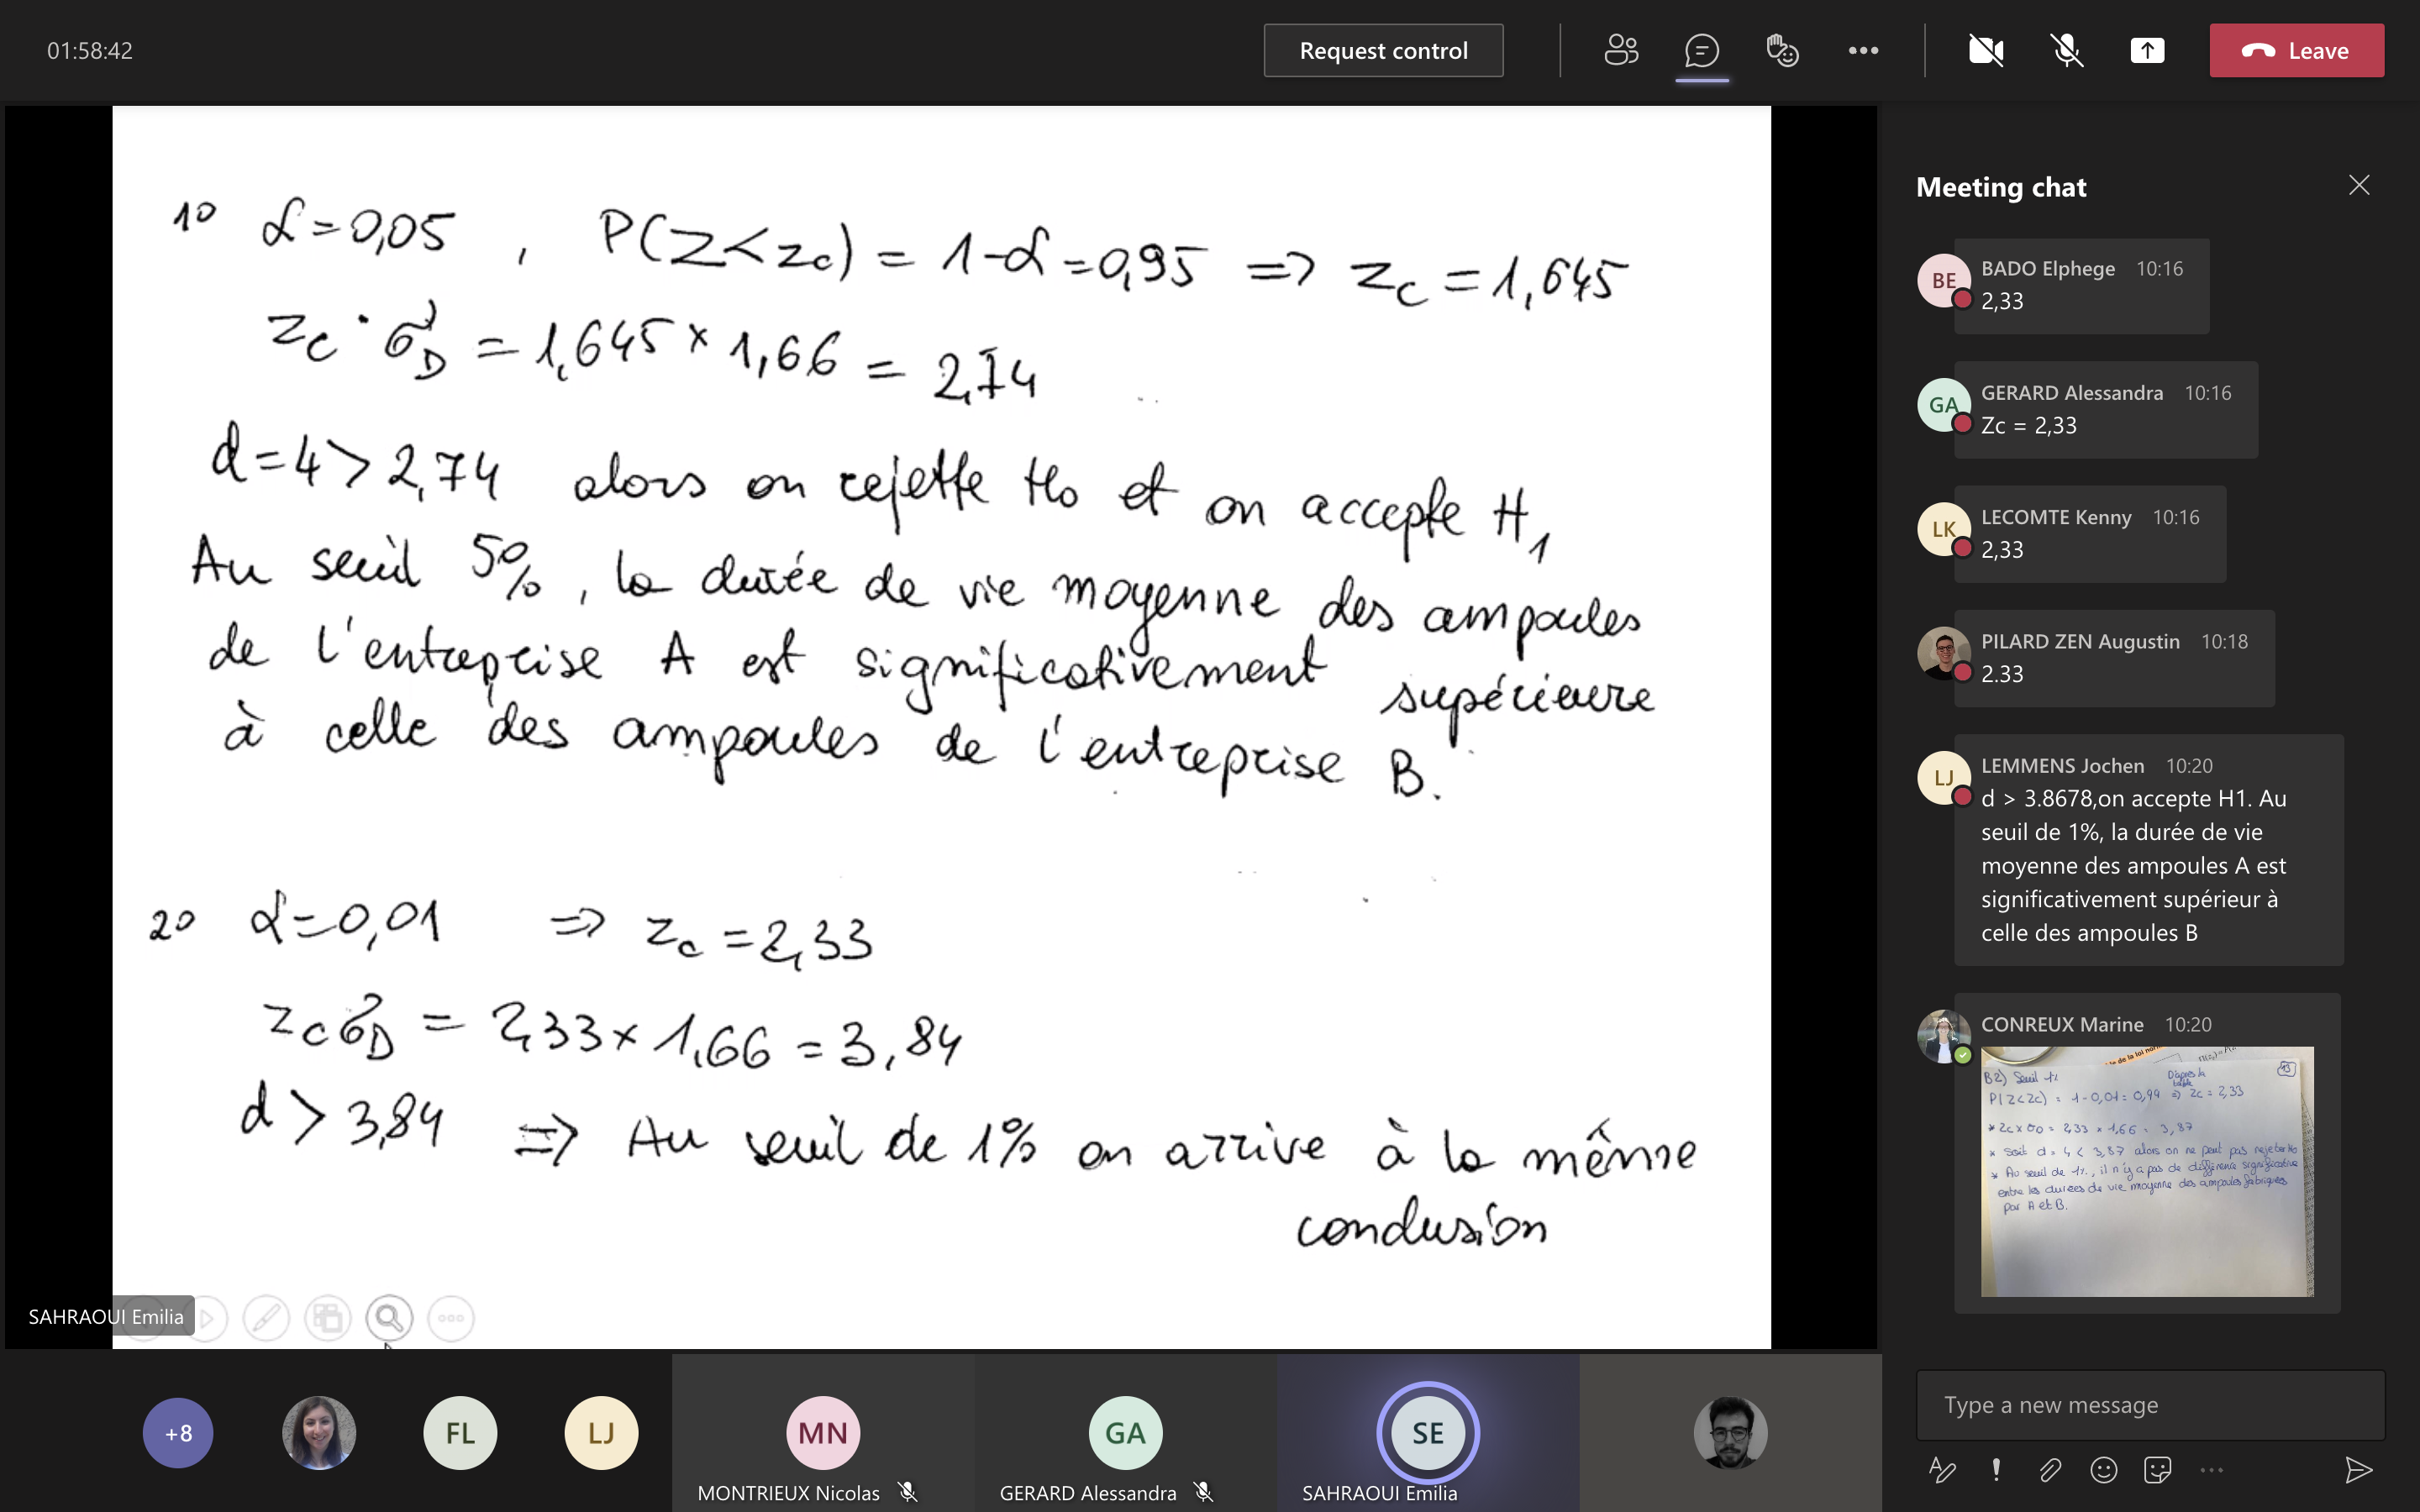 01:58:42
Request control
Leave
1º α=0,05 , P(Z<zc) = 1-α=0,95 => zc=1,645
zc · σD = 1,645 × 1,66 = 2,74
d=4>2,74 alors on rejette H0 et on accepte H1
Au seuil 5%, la durée de vie moyenne des ampoules
de l'entreprise A est significativement supérieure
à celle des ampoules de l'entreprise B.
2º α=0,01 => zc=2,33
zc σD = 2,33 × 1,66 = 3,84
d > 3,84 => Au seuil de 1% on arrive à la même
conclusion
SAHRAOUI Emilia
Meeting chat
BE
BADO Elphege 10:16
2,33
GA
GERARD Alessandra 10:16
Zc = 2,33
LK
LECOMTE Kenny 10:16
2,33
PILARD ZEN Augustin 10:18
2.33
LJ
LEMMENS Jochen 10:20
d > 3.8678,on accepte H1. Au
seuil de 1%, la durée de vie
moyenne des ampoules A est
significativement supérieur à
celle des ampoules B
CONREUX Marine 10:20
de la loi
B2) Seuil 1%
D'après la
table
P(Z<Zc) = 1-0,01 = 0,99 => Zc = 2,33
* Zc x σD = 2,33 x 1,66 = 3,87
* Soit d = 4 < 3,87 alors on ne peut pas rejeter H0
* Au seuil de 1%, il n'y a pas de différence significative
entre les durées de vie moyenne des ampoules fabriquées
par A et B.
Type a new message
+8
FL
LJ
MN
MONTRIEUX Nicolas
GA
GERARD Alessandra
SE
SAHRAOUI Emilia